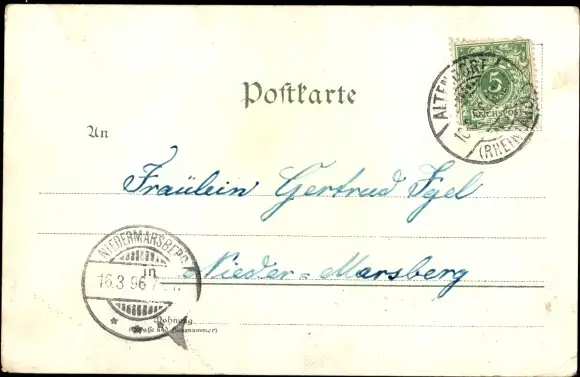 Postkarte
ALTENDORF
(RHEINLAND)
5
REICHSPOST
An
Fräulein Gertrud Igel
NIEDERMARSBERG
16.3.96 7-
in Nieder=Marsberg
Wohnung
(Straße und Hausnummer)